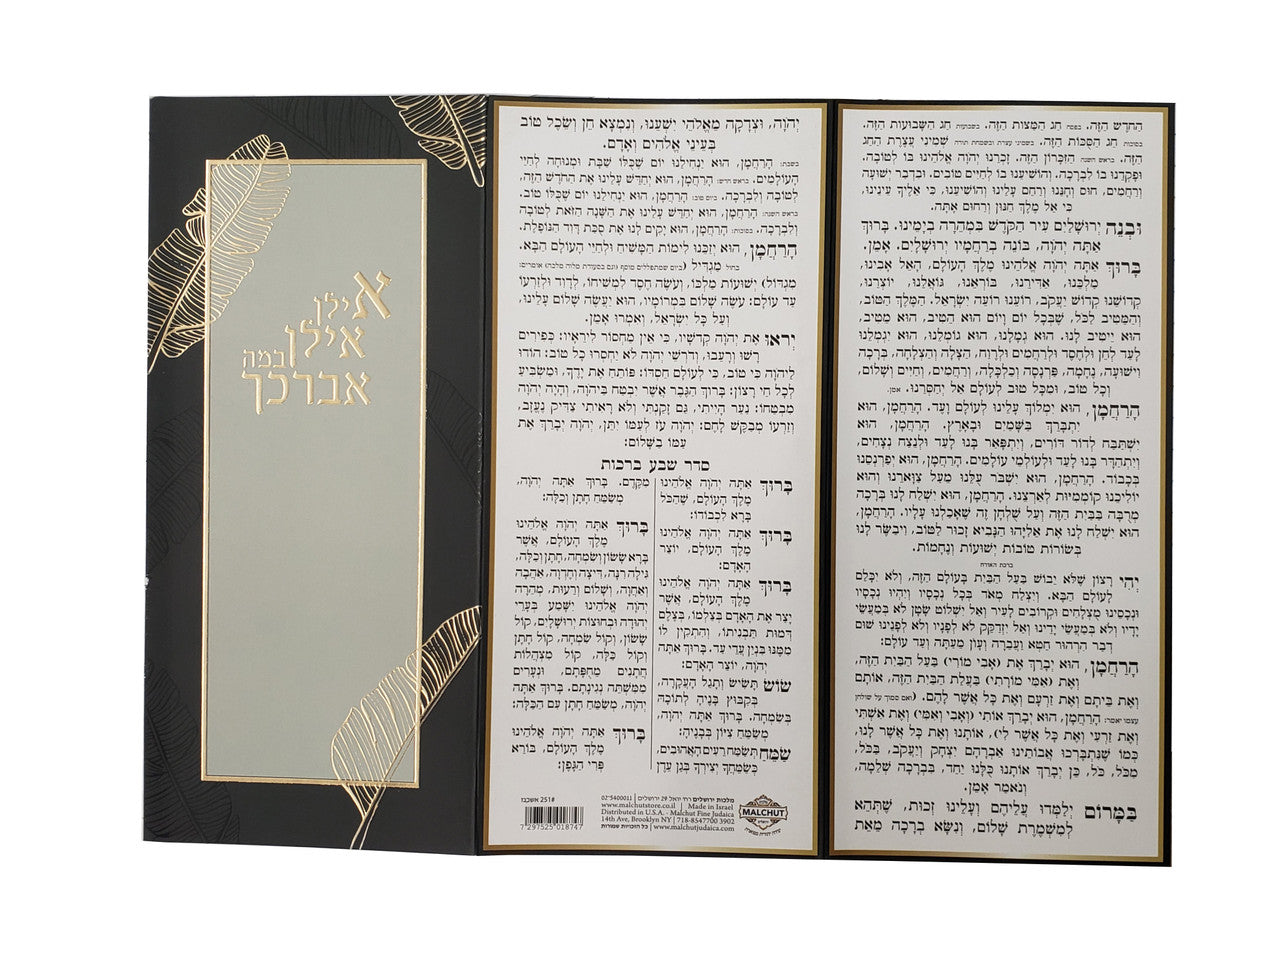 הַחֹדֶשׁ הַזֶּה. בפסח חַג הַמַּצּוֹת הַזֶּה. בשבועות חַג הַשָּׁבוּעוֹת הַזֶּה.
בסוכות חַג הַסֻּכּוֹת הַזֶּה. בשמיני עצרת ובשמחת תורה שְׁמִינִי עֲצֶרֶת הַחַג
הַזֶּה. בראש השנה הַזִּכָּרוֹן הַזֶּה. זָכְרֵנוּ יְהוָה אֱלֹהֵינוּ בּוֹ לְטוֹבָה.
וּפָקְדֵנוּ בוֹ לִבְרָכָה. וְהוֹשִׁיעֵנוּ בוֹ לְחַיִּים טוֹבִים. וּבִדְבַר יְשׁוּעָה
וְרַחֲמִים, חוּס וְחָנֵּנוּ וְרַחֵם עָלֵינוּ וְהוֹשִׁיעֵנוּ, כִּי אֵלֶיךָ עֵינֵינוּ,
כִּי אֵל מֶלֶךְ חַנּוּן וְרַחוּם אָתָּה.
וּבְנֵה יְרוּשָׁלַיִם עִיר הַקֹּדֶשׁ בִּמְהֵרָה בְיָמֵינוּ. בָּרוּךְ
אַתָּה יְהוָה, בּוֹנֵה בְרַחֲמָיו יְרוּשָׁלָיִם. אָמֵן.
בָּרוּךְ אַתָּה יְהוָה אֱלֹהֵינוּ מֶלֶךְ הָעוֹלָם, הָאֵל אָבִינוּ,
מַלְכֵּנוּ, אַדִּירֵנוּ, בּוֹרְאֵנוּ, גּוֹאֲלֵנוּ, יוֹצְרֵנוּ,
קְדוֹשֵׁנוּ קְדוֹשׁ יַעֲקֹב, רוֹעֵנוּ רוֹעֵה יִשְׂרָאֵל. הַמֶּלֶךְ הַטּוֹב,
וְהַמֵּטִיב לַכֹּל, שֶׁבְּכָל יוֹם וָיוֹם הוּא הֵטִיב, הוּא מֵטִיב,
הוּא יֵיטִיב לָנוּ. הוּא גְמָלָנוּ, הוּא גוֹמְלֵנוּ, הוּא יִגְמְלֵנוּ
לָעַד לְחֵן וּלְחֶסֶד וּלְרַחֲמִים וּלְרֶוַח, הַצָּלָה וְהַצְלָחָה, בְּרָכָה
וִישׁוּעָה, נֶחָמָה, פַּרְנָסָה וְכַלְכָּלָה, וְרַחֲמִים, וְחַיִּים וְשָׁלוֹם,
וְכָל טוֹב, וּמִכָּל טוּב לְעוֹלָם אַל יְחַסְּרֵנוּ. אמן.
הָרַחֲמָן, הוּא יִמְלוֹךְ עָלֵינוּ לְעוֹלָם וָעֶד. הָרַחֲמָן, הוּא
יִתְבָּרַךְ בַּשָּׁמַיִם וּבָאָרֶץ. הָרַחֲמָן, הוּא
יִשְׁתַּבַּח לְדוֹר דּוֹרִים, וְיִתְפָּאַר בָּנוּ לָעַד וּלְנֵצַח נְצָחִים,
וְיִתְהַדַּר בָּנוּ לָעַד וּלְעוֹלְמֵי עוֹלָמִים. הָרַחֲמָן, הוּא יְפַרְנְסֵנוּ
בְּכָבוֹד. הָרַחֲמָן, הוּא יִשְׁבֹּר עֻלֵּנוּ מֵעַל צַוָּארֵנוּ וְהוּא
יוֹלִיכֵנוּ קוֹמְמִיּוּת לְאַרְצֵנוּ. הָרַחֲמָן, הוּא יִשְׁלַח לָנוּ בְּרָכָה
מְרֻבָּה בַּבַּיִת הַזֶּה וְעַל שֻׁלְחָן זֶה שֶׁאָכַלְנוּ עָלָיו. הָרַחֲמָן,
הוּא יִשְׁלַח לָנוּ אֶת אֵלִיָּהוּ הַנָּבִיא זָכוּר לַטּוֹב, וִיבַשֶּׂר לָנוּ
בְּשׂוֹרוֹת טוֹבוֹת יְשׁוּעוֹת וְנֶחָמוֹת.
ברכת האורח
יְהִי רָצוֹן שֶׁלֹּא יֵבוֹשׁ בַּעַל הַבַּיִת בָּעוֹלָם הַזֶּה, וְלֹא יִכָּלֵם
לָעוֹלָם הַבָּא. וְיִצְלַח מְאֹד בְּכָל נְכָסָיו וְיִהְיוּ נְכָסָיו
וּנְכָסֵינוּ מֻצְלָחִים וּקְרוֹבִים לָעִיר וְאַל יִשְׁלוֹט שָׂטָן לֹא בְּמַעֲשֵׂי
יָדָיו וְלֹא בְּמַעֲשֵׂי יָדֵינוּ וְאַל יִזְדַּקֵּק לֹא לְפָנָיו וְלֹא לְפָנֵינוּ שׁוּם
דְּבַר הִרְהוּר חֵטְא וַעֲבֵרָה וְעָוֹן מֵעַתָּה וְעַד עוֹלָם:
הָרַחֲמָן, הוּא יְבָרֵךְ אֶת (אָבִי מוֹרִי) בַּעַל הַבַּיִת הַזֶּה,
וְאֶת (אִמִּי מוֹרָתִי) בַּעֲלַת הַבַּיִת הַזֶּה, אוֹתָם
וְאֶת בֵּיתָם וְאֶת זַרְעָם וְאֶת כָּל אֲשֶׁר לָהֶם. (ואם סמוך על שולחן
עצמו יאמר: הָרַחֲמָן, הוּא יְבָרֵךְ אוֹתִי (וְאָבִי וְאִמִּי) וְאֶת אִשְׁתִּי
וְאֶת זַרְעִי וְאֶת כָּל אֲשֶׁר לִי), אוֹתָנוּ וְאֶת כָּל אֲשֶׁר לָנוּ,
כְּמוֹ שֶׁנִּתְבָּרְכוּ אֲבוֹתֵינוּ אַבְרָהָם יִצְחָק וְיַעֲקֹב, בַּכֹּל,
מִכֹּל, כֹּל, כֵּן יְבָרֵךְ אוֹתָנוּ כֻּלָּנוּ יַחַד, בִּבְרָכָה שְׁלֵמָה,
וְנֹאמַר אָמֵן.
בַּמָּרוֹם יְלַמְּדוּ עֲלֵיהֶם וְעָלֵינוּ זְכוּת, שֶׁתְּהֵא
לְמִשְׁמֶרֶת שָׁלוֹם, וְנִשָּׂא בְרָכָה מֵאֵת
יְהוָה, וּצְדָקָה מֵאֱלֹהֵי יִשְׁעֵנוּ, וְנִמְצָא חֵן וְשֵׂכֶל טוֹב
בְּעֵינֵי אֱלֹהִים וְאָדָם.
בשבת: הָרַחֲמָן, הוּא יַנְחִילֵנוּ יוֹם שֶׁכֻּלּוֹ שַׁבָּת וּמְנוּחָה לְחַיֵּי
הָעוֹלָמִים. בראש חדש: הָרַחֲמָן, הוּא יְחַדֵּשׁ עָלֵינוּ אֶת הַחֹדֶשׁ הַזֶּה,
לְטוֹבָה וְלִבְרָכָה. ביום טוב: הָרַחֲמָן, הוּא יַנְחִילֵנוּ יוֹם שֶׁכֻּלּוֹ טוֹב.
בראש השנה: הָרַחֲמָן, הוּא יְחַדֵּשׁ עָלֵינוּ אֶת הַשָּׁנָה הַזֹּאת לְטוֹבָה
וְלִבְרָכָה. בסוכות: הָרַחֲמָן, הוּא יָקִים לָנוּ אֶת סֻכַּת דָּוִד הַנּוֹפֶלֶת.
הָרַחֲמָן, הוּא יְזַכֵּנוּ לִימוֹת הַמָּשִׁיחַ וּלְחַיֵּי הָעוֹלָם הַבָּא.
בחול מַגְדִּיל (ביום שמתפללים מוסף (וגם בסעודת מלוה מלכה) אומרים:
מִגְדּוֹל) יְשׁוּעוֹת מַלְכּוֹ, וְעֹשֶׂה חֶסֶד לִמְשִׁיחוֹ, לְדָוִד וּלְזַרְעוֹ
עַד עוֹלָם: עֹשֶׂה שָׁלוֹם בִּמְרוֹמָיו, הוּא יַעֲשֶׂה שָׁלוֹם עָלֵינוּ,
וְעַל כָּל יִשְׂרָאֵל, וְאִמְרוּ אָמֵן.
יְראוּ אֶת יְהוָה קְדֹשָׁיו, כִּי אֵין מַחְסוֹר לִירֵאָיו: כְּפִירִים
רָשׁוּ וְרָעֵבוּ, וְדֹרְשֵׁי יְהוָה לֹא יַחְסְרוּ כָל טוֹב: הוֹדוּ
לַיהוָה כִּי טוֹב, כִּי לְעוֹלָם חַסְדּוֹ: פּוֹתֵחַ אֶת יָדֶךָ, וּמַשְׂבִּיעַ
לְכָל חַי רָצוֹן: בָּרוּךְ הַגֶּבֶר אֲשֶׁר יִבְטַח בַּיהוָה, וְהָיָה יְהוָה
מִבְטַחוֹ: נַעַר הָיִיתִי, גַּם זָקַנְתִּי וְלֹא רָאִיתִי צַדִּיק נֶעֱזָב,
וְזַרְעוֹ מְבַקֶּשׁ לָחֶם: יְהוָה עֹז לְעַמּוֹ יִתֵּן, יְהוָה יְבָרֵךְ אֶת
עַמּוֹ בַשָּׁלוֹם:
סדר שבע ברכות
בָּרוּךְ אַתָּה יְהוָה אֱלֹהֵינוּ
מֶלֶךְ הָעוֹלָם, שֶׁהַכֹּל
בָּרָא לִכְבוֹדוֹ:
בָּרוּךְ אַתָּה יְהוָה אֱלֹהֵינוּ
מֶלֶךְ הָעוֹלָם, יוֹצֵר
הָאָדָם:
בָּרוּךְ אַתָּה יְהוָה אֱלֹהֵינוּ
מֶלֶךְ הָעוֹלָם, אֲשֶׁר
יָצַר אֶת הָאָדָם בְּצַלְמוֹ, בְּצֶלֶם
דְּמוּת תַּבְנִיתוֹ, וְהִתְקִין לוֹ
מִמֶּנּוּ בִּנְיַן עֲדֵי עַד. בָּרוּךְ אַתָּה
יְהוָה, יוֹצֵר הָאָדָם:
שׂוֹשׂ תָּשִׂישׂ וְתָגֵל הָעֲקָרָה,
בְּקִבּוּץ בָּנֶיהָ לְתוֹכָהּ
בְּשִׂמְחָה. בָּרוּךְ אַתָּה יְהוָה,
מְשַׂמֵּחַ צִיּוֹן בְּבָנֶיהָ:
שַׂמֵּחַ תְּשַׂמַּח רֵעִים הָאֲהוּבִים,
כְּשַׂמֵּחֲךָ יְצִירְךָ בְּגַן עֵדֶן
מִקֶּדֶם. בָּרוּךְ אַתָּה יְהוָה,
מְשַׂמֵּחַ חָתָן וְכַלָּה:
בָּרוּךְ אַתָּה יְהוָה אֱלֹהֵינוּ
מֶלֶךְ הָעוֹלָם, אֲשֶׁר
בָּרָא שָׂשׂוֹן וְשִׂמְחָה, חָתָן וְכַלָּה,
גִּילָה רִנָּה, דִּיצָה וְחֶדְוָה, אַהֲבָה
וְאַחֲוָה, וְשָׁלוֹם וְרֵעוּת, מְהֵרָה
יְהוָה אֱלֹהֵינוּ יִשָּׁמַע בְּעָרֵי
יְהוּדָה וּבְחוּצוֹת יְרוּשָׁלַיִם, קוֹל
שָׂשׂוֹן, וְקוֹל שִׂמְחָה, קוֹל חָתָן
וְקוֹל כַּלָּה, קוֹל מִצְהֲלוֹת
חֲתָנִים מֵחֻפָּתָם, וּנְעָרִים
מִמִּשְׁתֵּה נְגִינָתָם. בָּרוּךְ אַתָּה
יְהוָה, מְשַׂמֵּחַ חָתָן עִם הַכַּלָּה:
בָּרוּךְ אַתָּה יְהוָה אֱלֹהֵינוּ
מֶלֶךְ הָעוֹלָם, בּוֹרֵא
פְּרִי הַגָּפֶן:
MALCHUT
מלכות ירושלים רח׳ יחזקאל 29 ירושלים | 02-5400011
www.malchutstore.co.il | Made in Israel
Distributed in U.S.A. - Malchut Fine Judaica
14th Ave, Brooklyn NY | 718-8547700 3902
כל הזכויות שמורות | www.malchutjudaica.com
אשכבז 251#
7 297525 018747
אילן
אילן
במה
אברכך